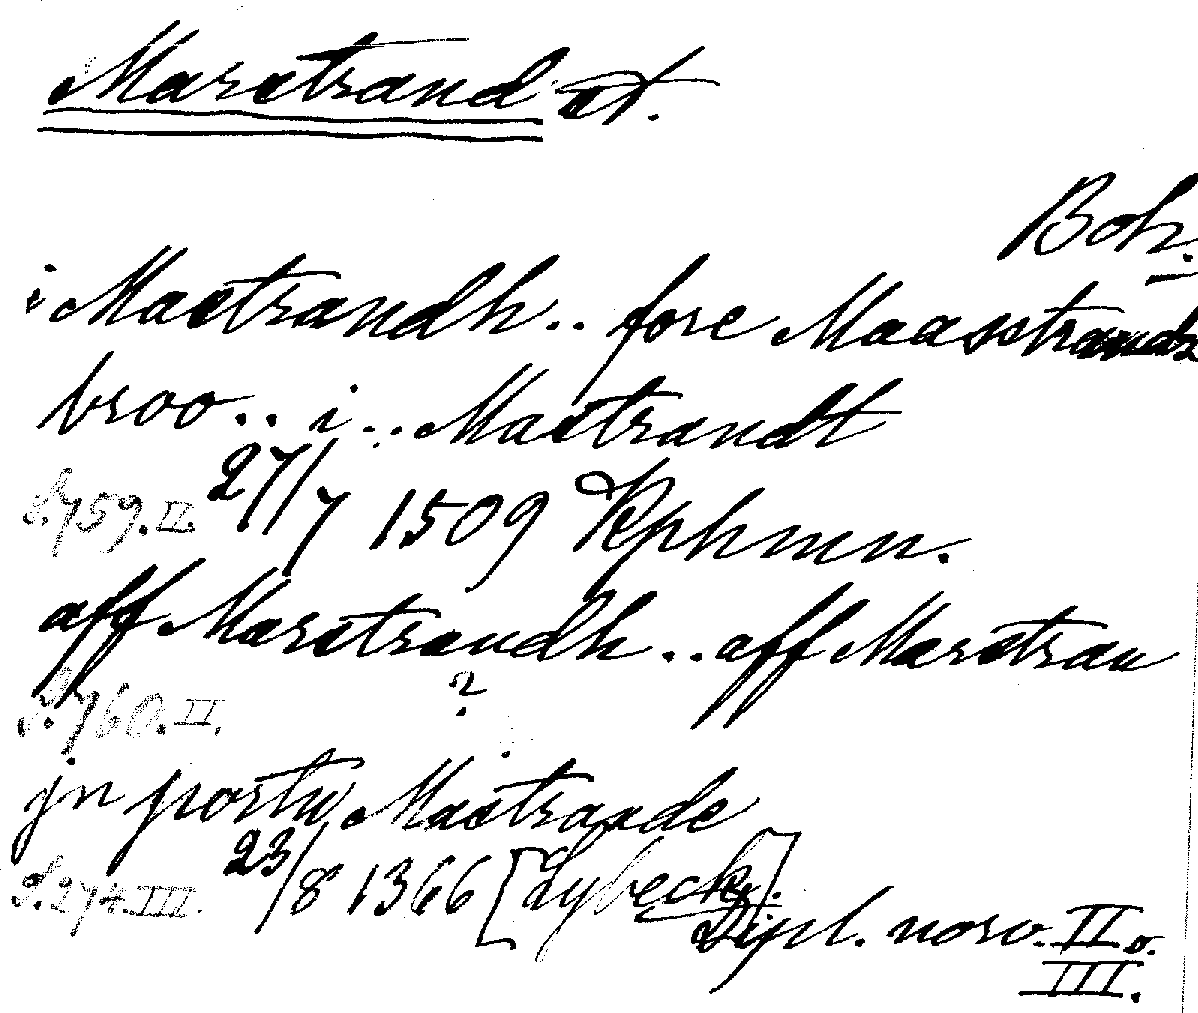 Marstrand st.
Boh.
i Mastrandh.. fore Maasstrandz
broo.. i... Mastrandt
S.759.II. 27/7 1509 Kphmn.
aff Marstrandh.. aff Marstran
S.760.II. ?
jn portu Mastrande
S.274.III. 23/8 1366 [Lybeck].
Dipl. norv. II o.
III.